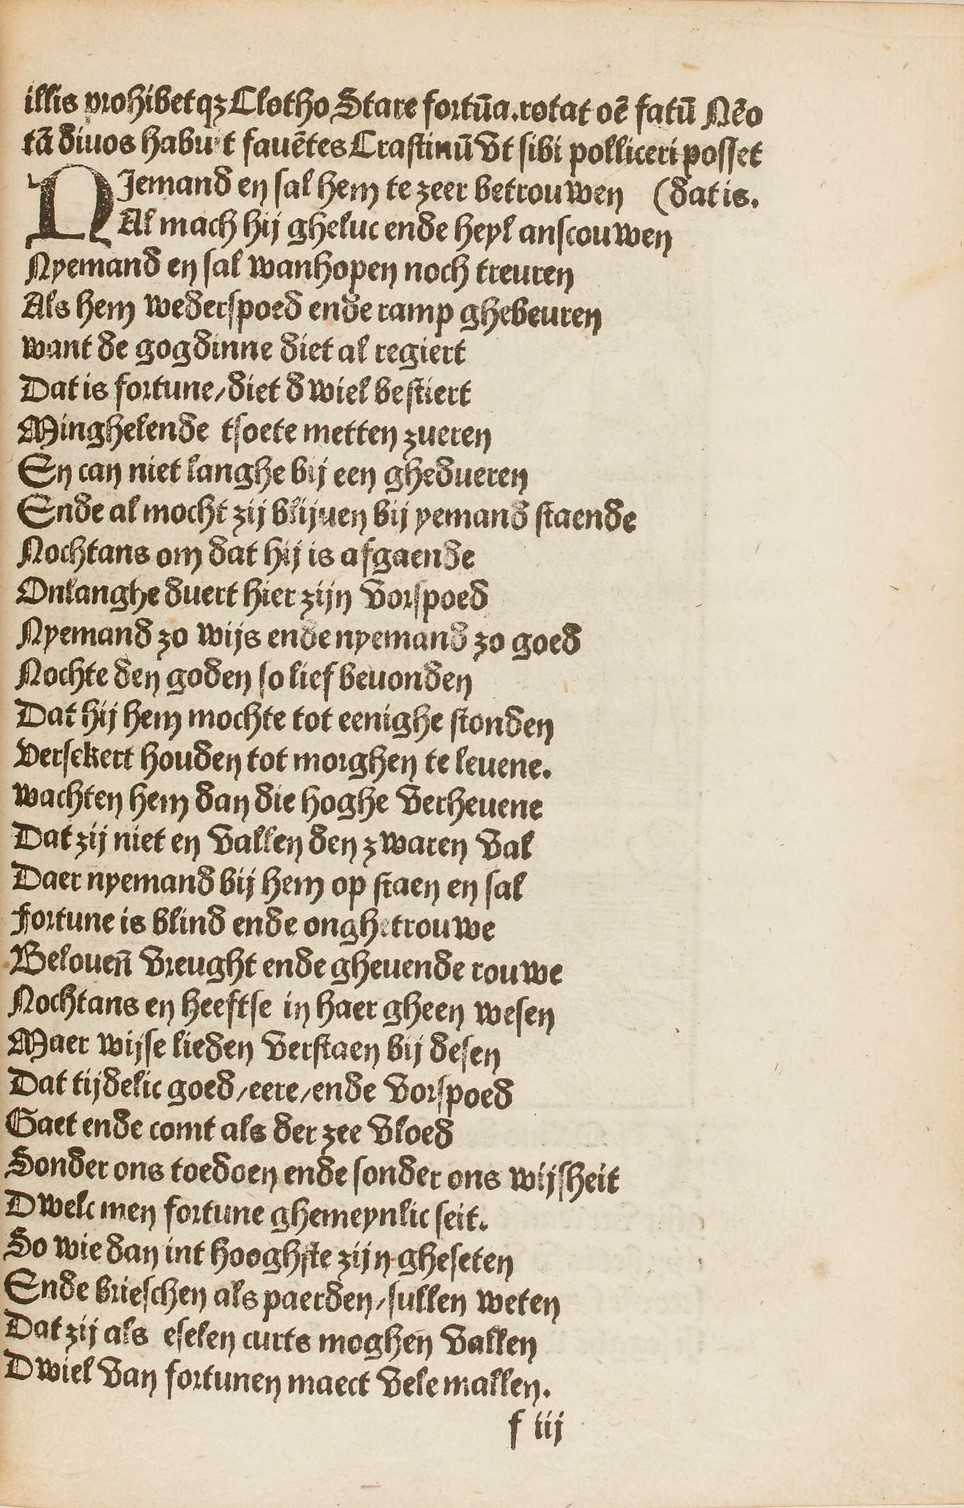 illis prohibetqꝫ Clotho Stare fortūa. rotat oē fatū Nēo
tā diuos habu t fauētes Crastinū Vt sibi polliceri posset
NJemand en sal hem te zeer betrouwen (dat is.
Al mach hij gheluc ende heyl anscouwen
Nyemand en sal wanhopen noch treuren
Als hem wederspoed ende ramp ghebeuren
want de gogdinne diet al regiert
Dat is fortune/diet d wiel bestiert
Minghelende tsoete metten zueren
En can niet langhe bij een ghedueren
Ende al mocht zij blijuen bij yemand staende
Nochtans om dat hij is afgaende
Onlanghe duert hier zijn Vorspoed
Nyemand zo wijs ende nyemand zo goed
Nochte den goden so lief beuonden
Dat hij hem mochte tot eenighe stonden
Versekert houden tot morghen te leuene.
wachten hem dan die hoghe Verheuene
Dat zij niet en Vallen den zwaren Val
Daer nyemand bij hem op staen en sal
Fortune is blind ende onghetrouwe
Beloueñ Vreught ende gheuende rouwe
Nochtans en heeftse in haer gheen wesen
Maer wijse lieden Verstaen bij desen
Dat tijdelic goed/eere/ende Vorspoed
Gaet ende comt als der zee Vloed
Sonder ons toedoen ende sonder ons wijsheit
Dwelc men fortune ghemeynlic seit.
So wie dan int hooghste zijn gheseten
Ende brieschen als paerden/sullen weten
Dat zij als eselen curts moghen Vallen
Dwiel Van fortunen maect Vele mallen.
f iij